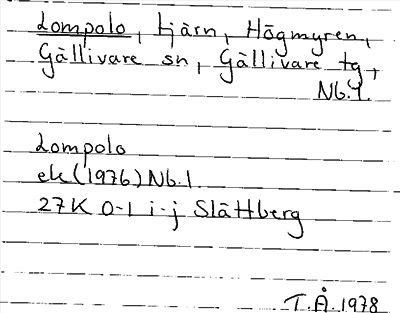 Lompolo, tjärn, Högmyren,
Gällivare sn, Gällivare tg,
Nb.l.
Lompolo
ek (1976) Nb.l.
27K 0-1 i-j Slättberg
T.Å. 1978